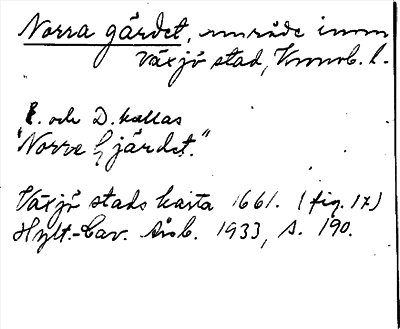 Norra gärdet, område inom
Växjö stad, Kronob. l.
P. och D. kallas
"Norre Gjärdet."
Växjö stads karta 1661. (fig. 17)
Hylt.-Cav. Årsb. 1933, s. 190.